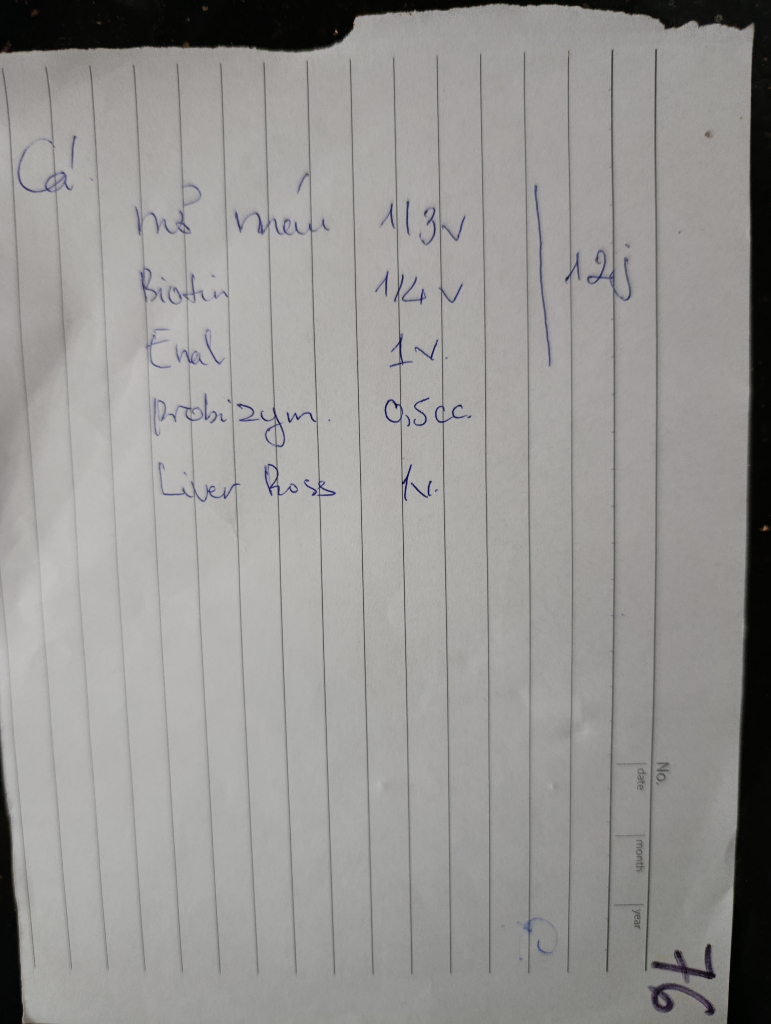 Cá
mỡ máu 1/3v
Biotin 1/4 v 12j
Enal 1v.
probizym. 0,5cc.
Liver Ross 1v.
No.
date month year
76